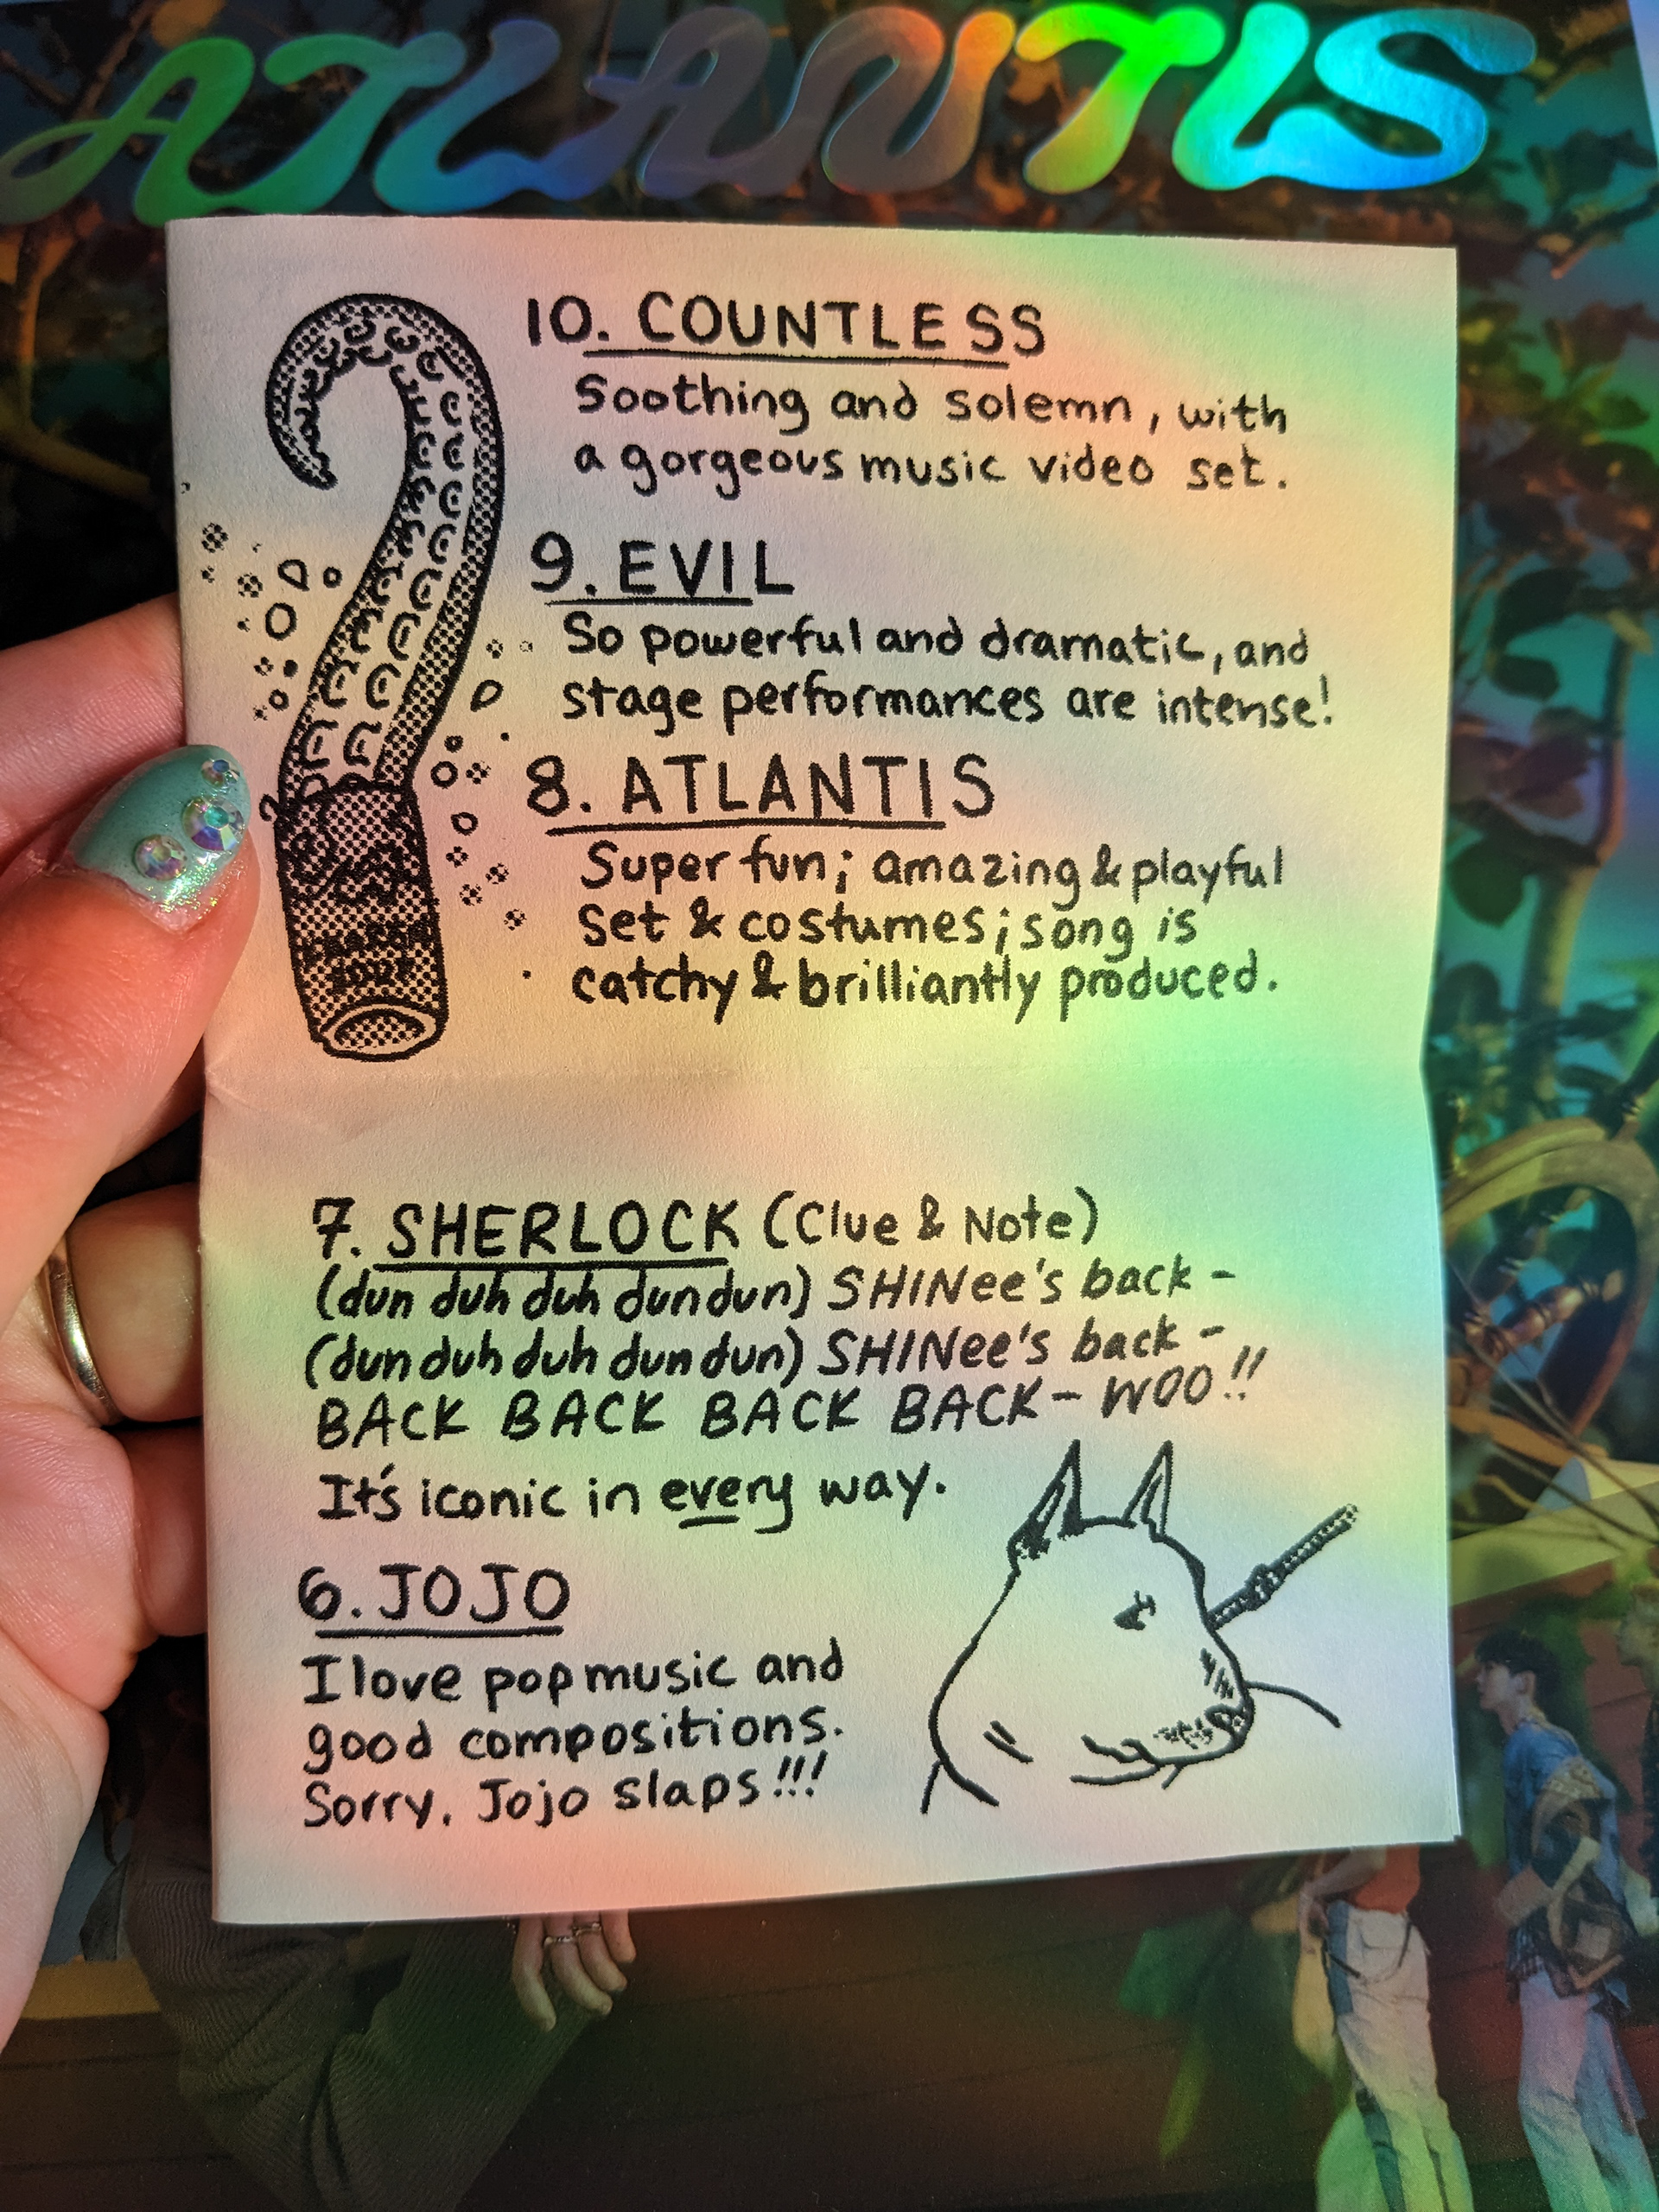 ATLANTIS
10. COUNTLESS
Soothing and solemn, with
a gorgeous music video set.
9. EVIL
So powerful and dramatic, and
stage performances are intense!
8. ATLANTIS
Super fun; amazing & playful
set & costumes; song is
catchy & brilliantly produced.
SOUP
7. SHERLOCK (Clue & Note)
(dun duh duh dun dun) SHINee's back -
(dun duh duh dun dun) SHINee's back -
BACK BACK BACK BACK - WOO!!
It's iconic in every way.
6. JOJO
I love pop music and
good compositions.
Sorry. Jojo slaps!!!